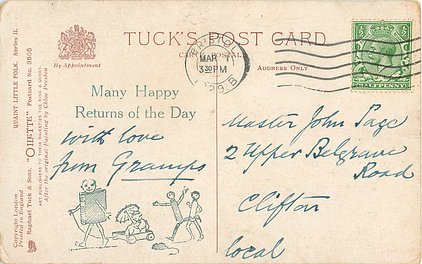 TUCK'S POST CARD
CARTE POSTALE
By Appointment
ADDRESS ONLY
BRISTOL
MAR 1
3 30 PM
HALFPENNY
Many Happy
Returns of the Day
with love
from Gramps
Master John Page
2 Upper Belgrave
Road
Clifton
local
QUAINT LITTLE FOLK. Series II.
Raphael Tuck & Sons' "OILETTE" Postcard No. 3505
ART PUBLISHERS TO THEIR MAJESTIES THE KING & QUEEN
After the original Painting by Chloe Preston
Copyright London
Printed in England